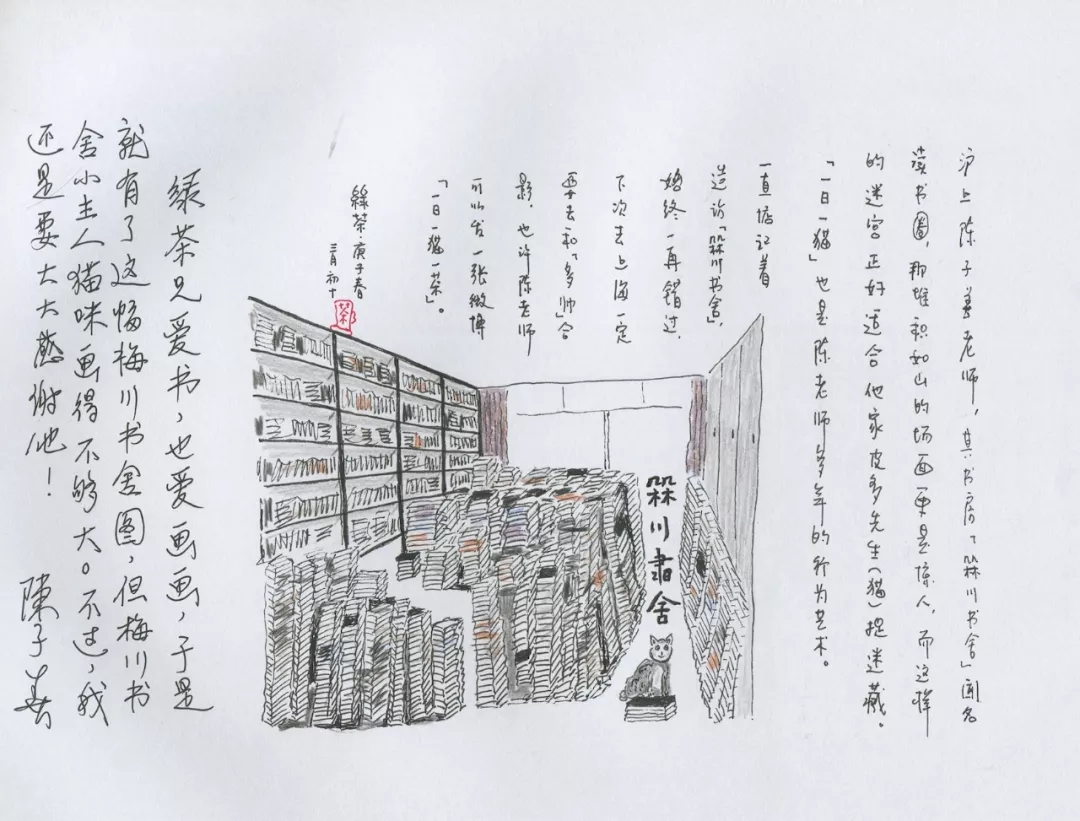 沪上陈子善老师，其书房「槑川书舍」闻名
读书圈，那堆积如山的场面更是人，而这样
的迷宫正好适合他家皮多先生（猫）捉迷藏。
「一日一猫」也是陈老师多年的行为艺术。
一直惦记着
造访「槑川书舍」，
始终一再错过，
下次去上海一定
要去和「多帅」合
影，也许陈老师
可以发一张微博
「一日一猫一茶」。
绿茶·庚子春
三月初十
茶
槑川書舍
绿茶兄爱书，也爱画画，于是
就有了这幅梅川书舍图，但梅川书
舍小主人猫咪画得不够大。不过，我
还是要大大感谢他！
陳子善